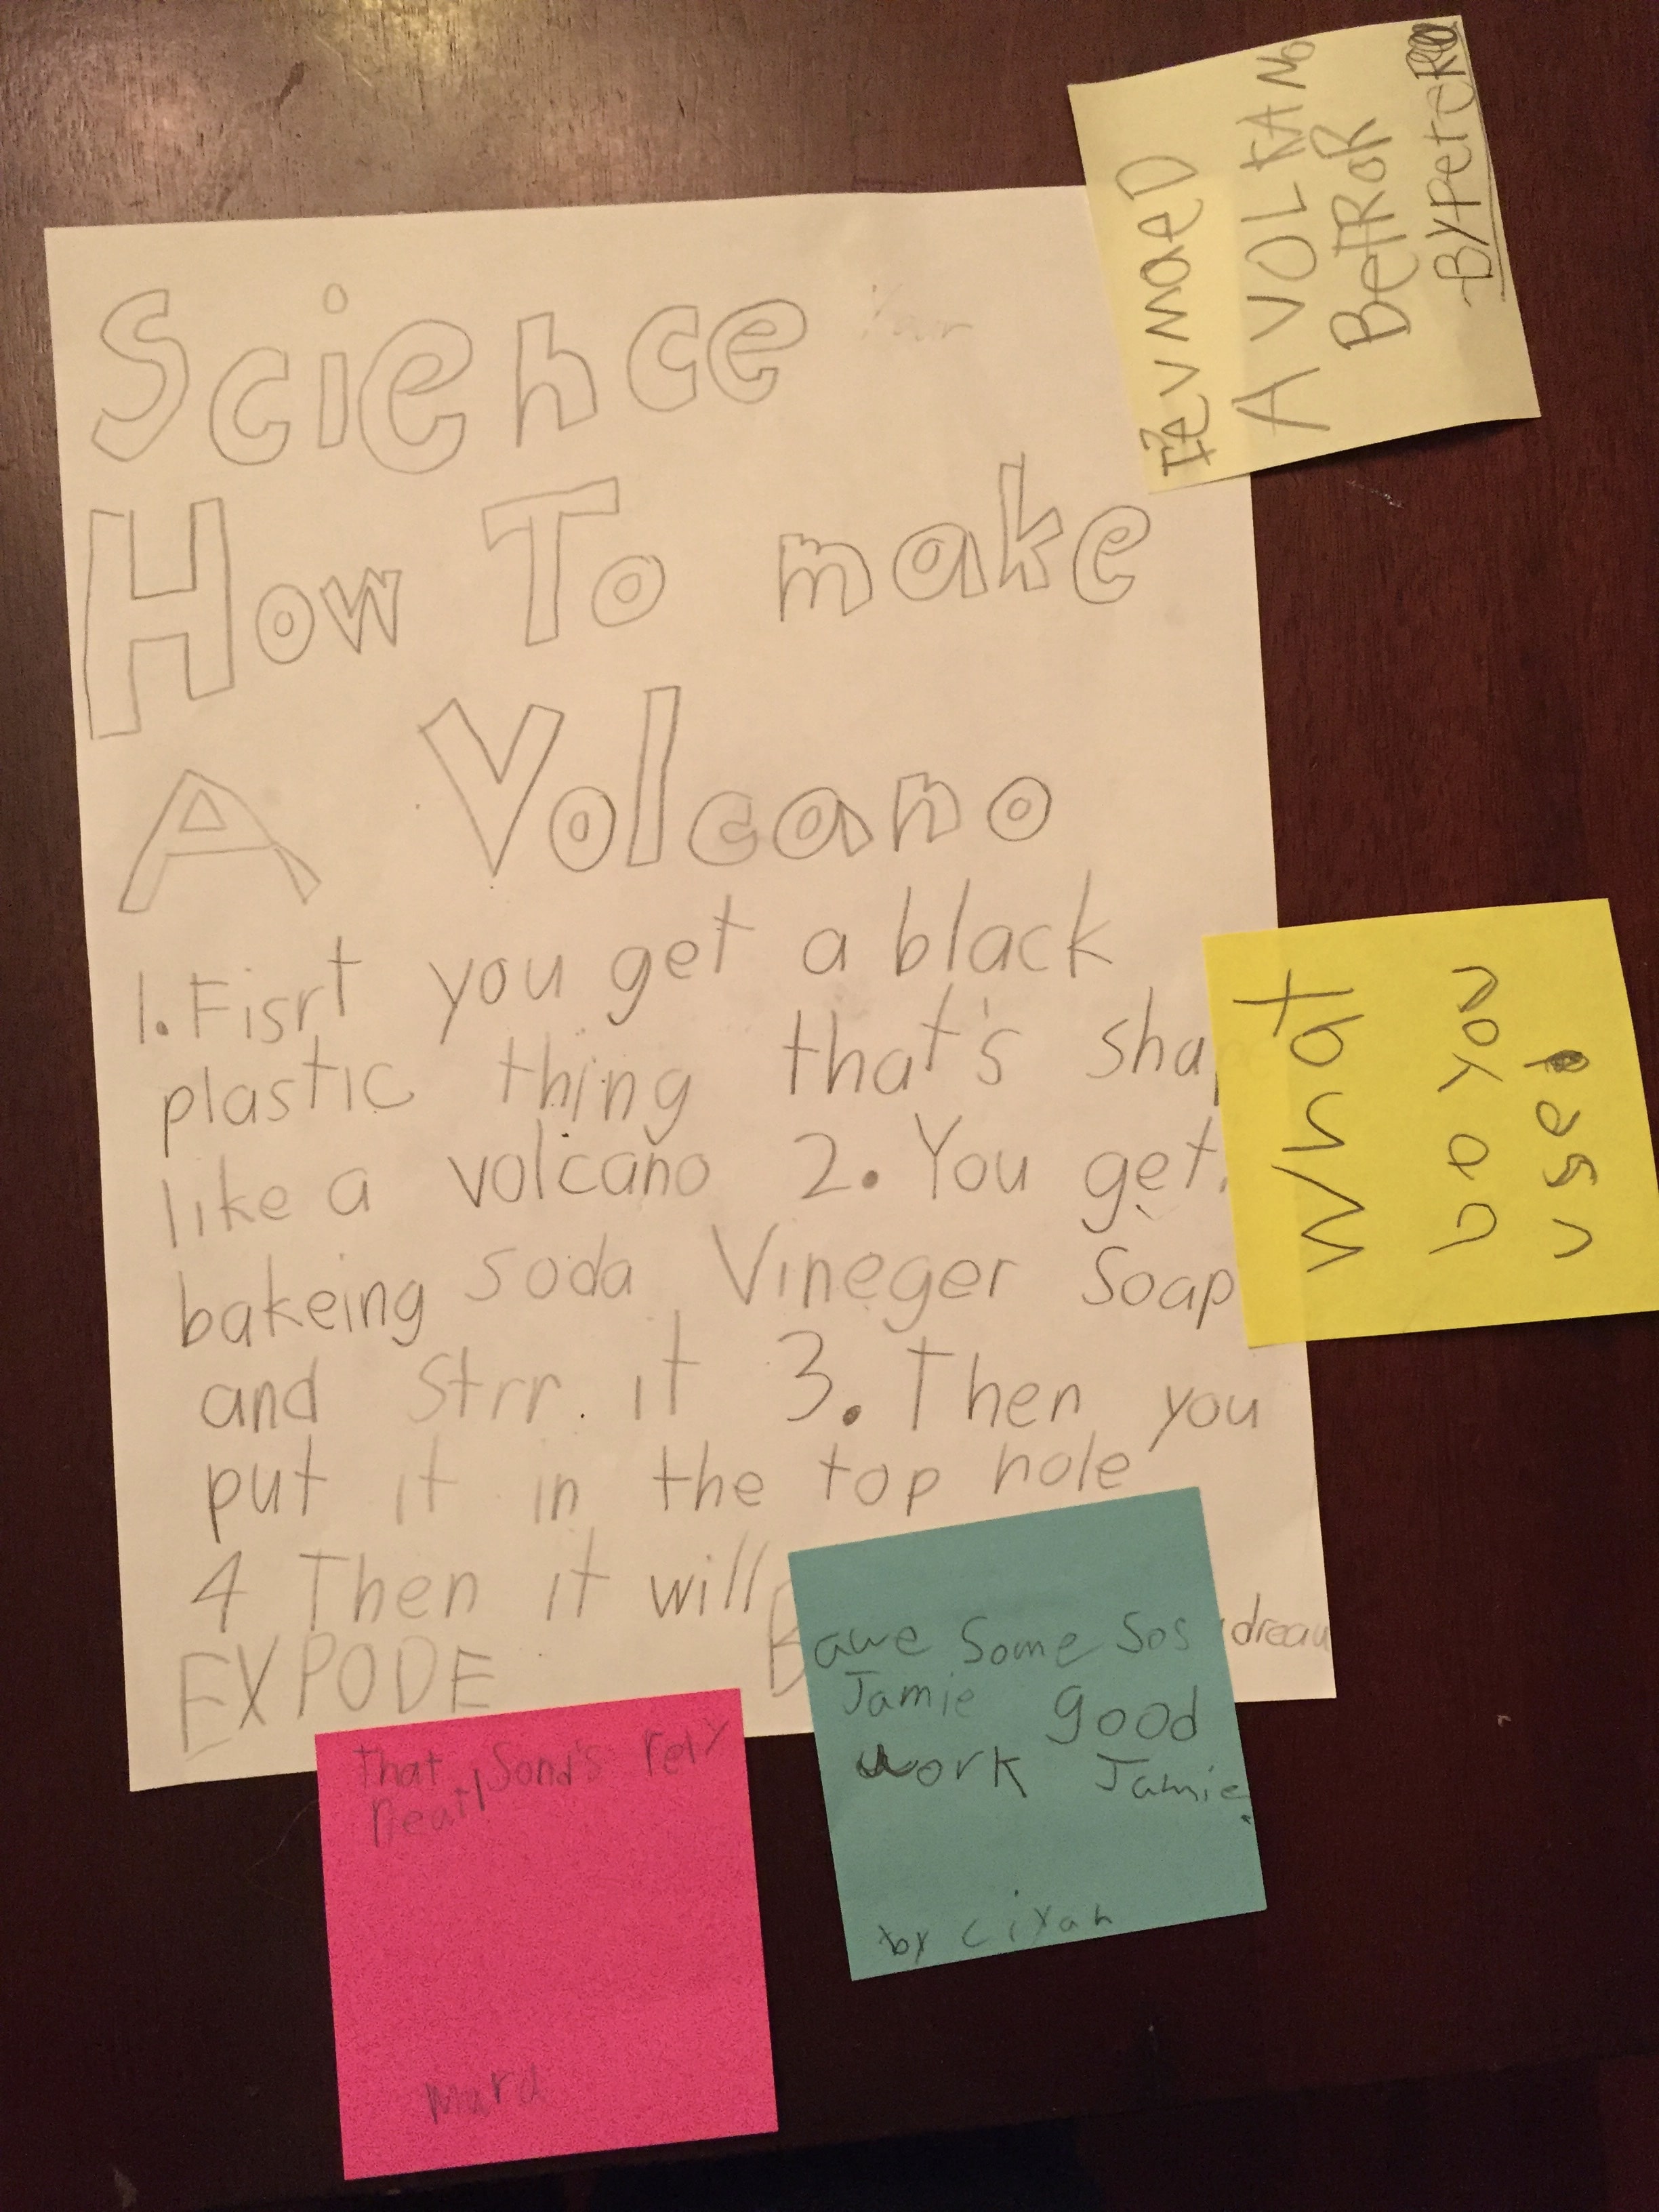 Science
How To make
A Volcano
1. Fisrt you get a black
plastic thing that's sha
like a volcano 2. You get
bakeing soda Vineger Soap
and strr it 3. Then you
put it in the top hole
4 Then it will
EXPODE
dreau
IevmaeD
A VOLKANo
BeTRoR
BYPeteR
What
do you
use
awe Some Sos
Jamie good
work Jamie
by Ciyah
that Sond's rely
neat!